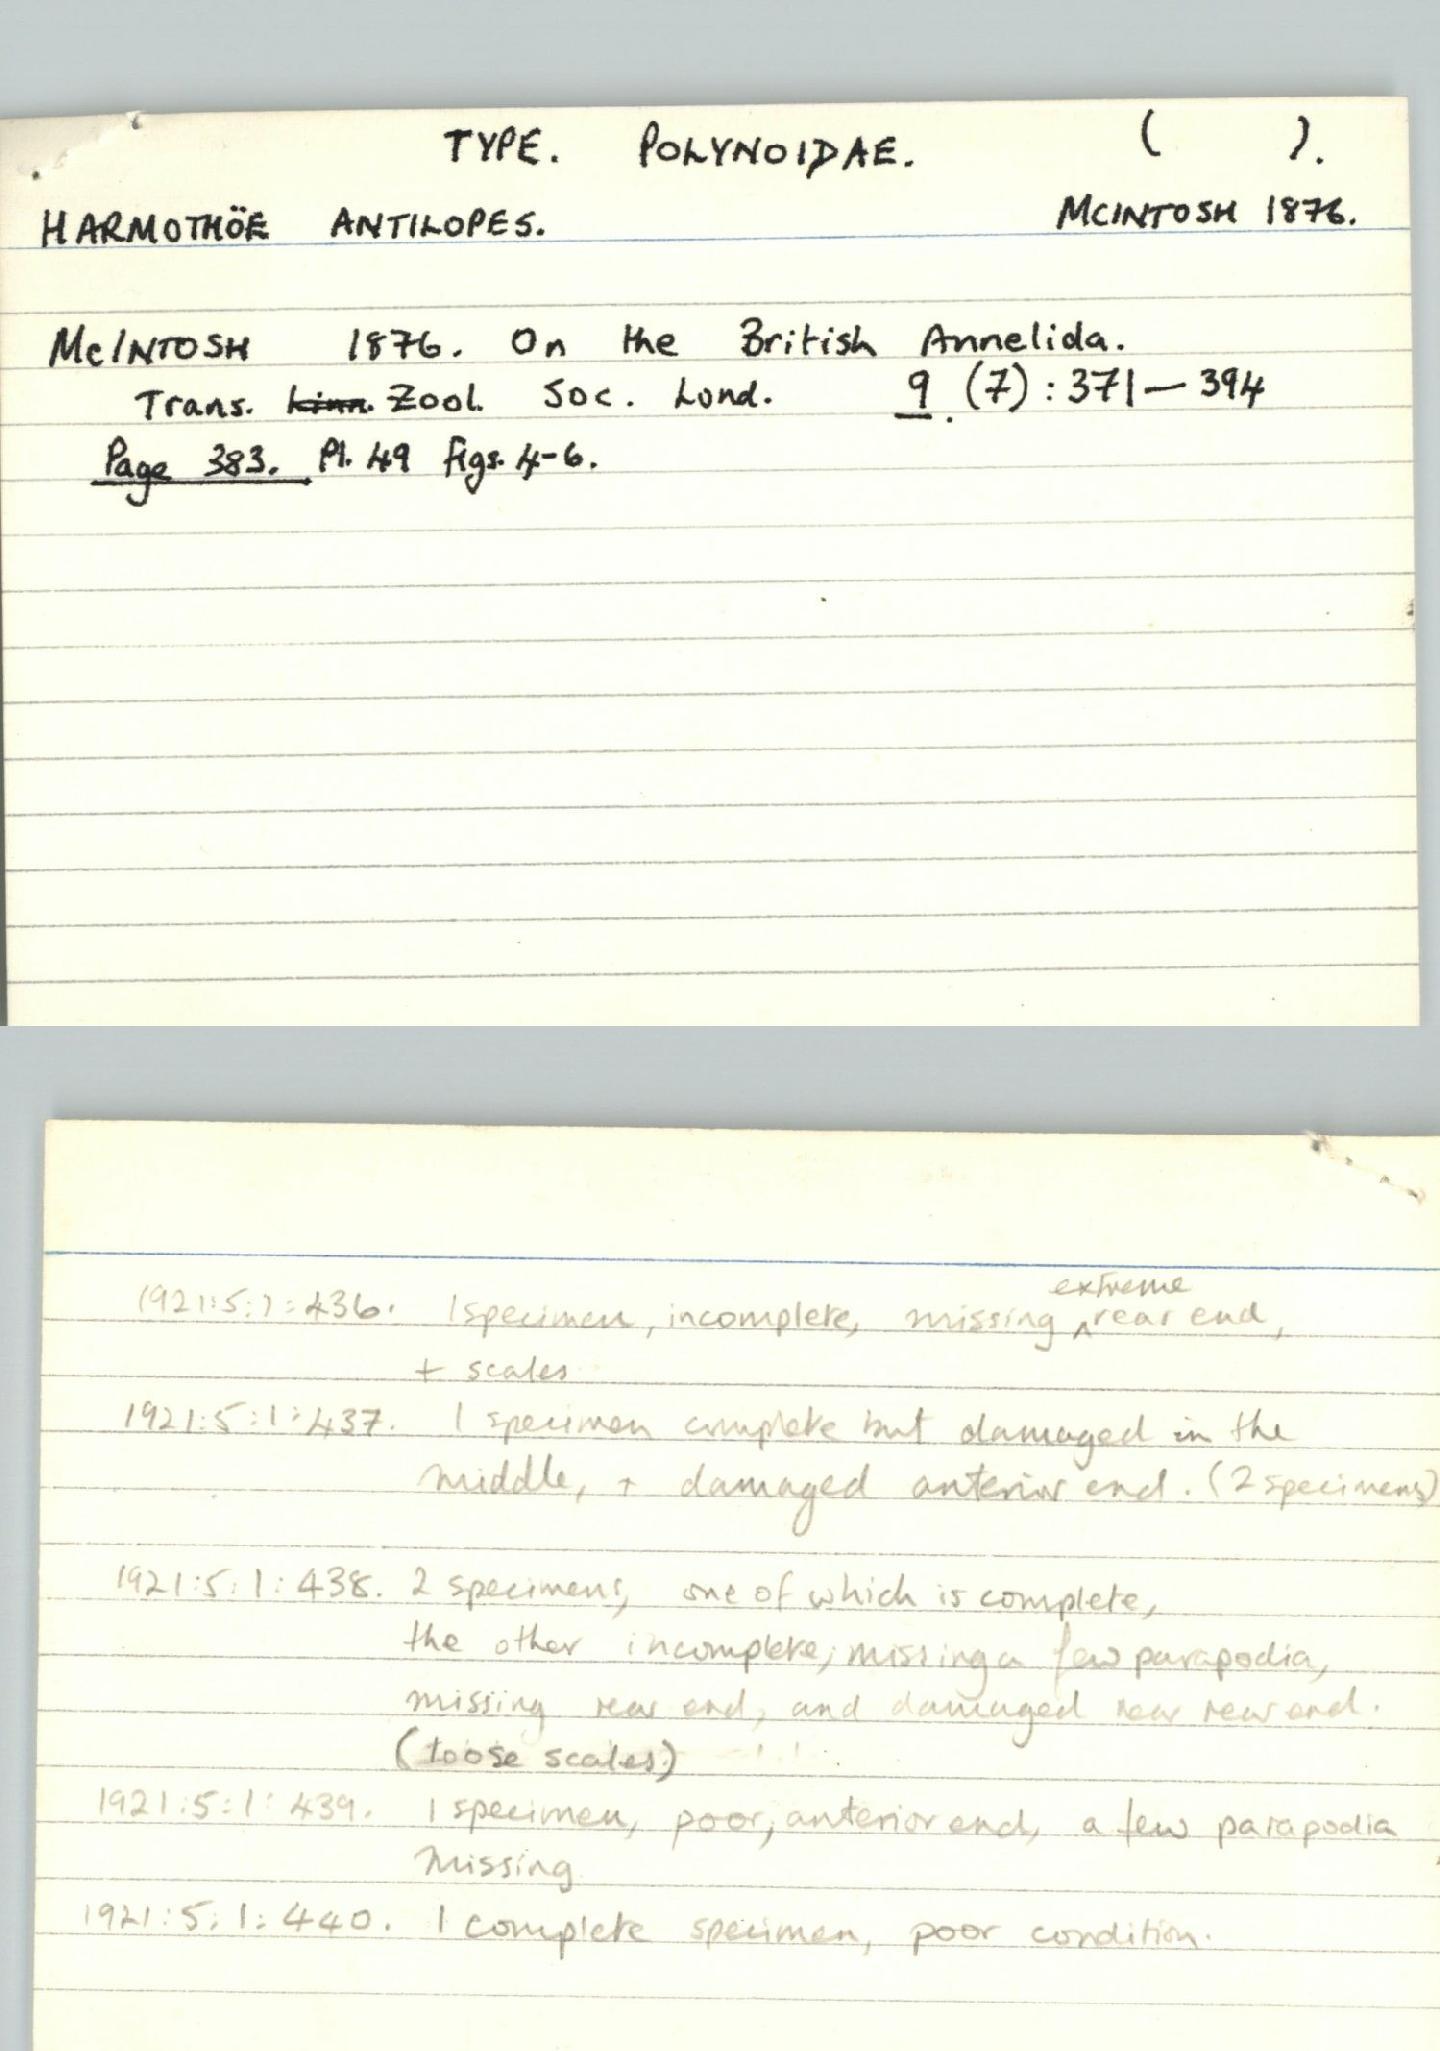 TYPE. POLYNOIDAE. ( ).
HARMOTHÖE ANTILOPES. MCINTOSH 1876.
McINTOSH 1876. On the British Annelida.
Trans. Linn. Zool. Soc. Lond. 9. (7): 371-394
Page 383. Pl. 49 figs. 4-6.
extreme
1921:5:1:436. 1 specimen, incomplete, missing ^ rear end,
+ scales
1921:5:1:437. 1 specimen complete but damaged in the
middle, + damaged anterior end. (2 specimens)
1921:5:1:438. 2 specimens, one of which is complete,
the other incomplete; missing a few parapodia,
missing rear end, and damaged near rear end.
(loose scales)
1921:5:1:439. 1 specimen, poor, anterior end, a few parapodia
missing
1921:5:1:440. 1 complete specimen, poor condition.